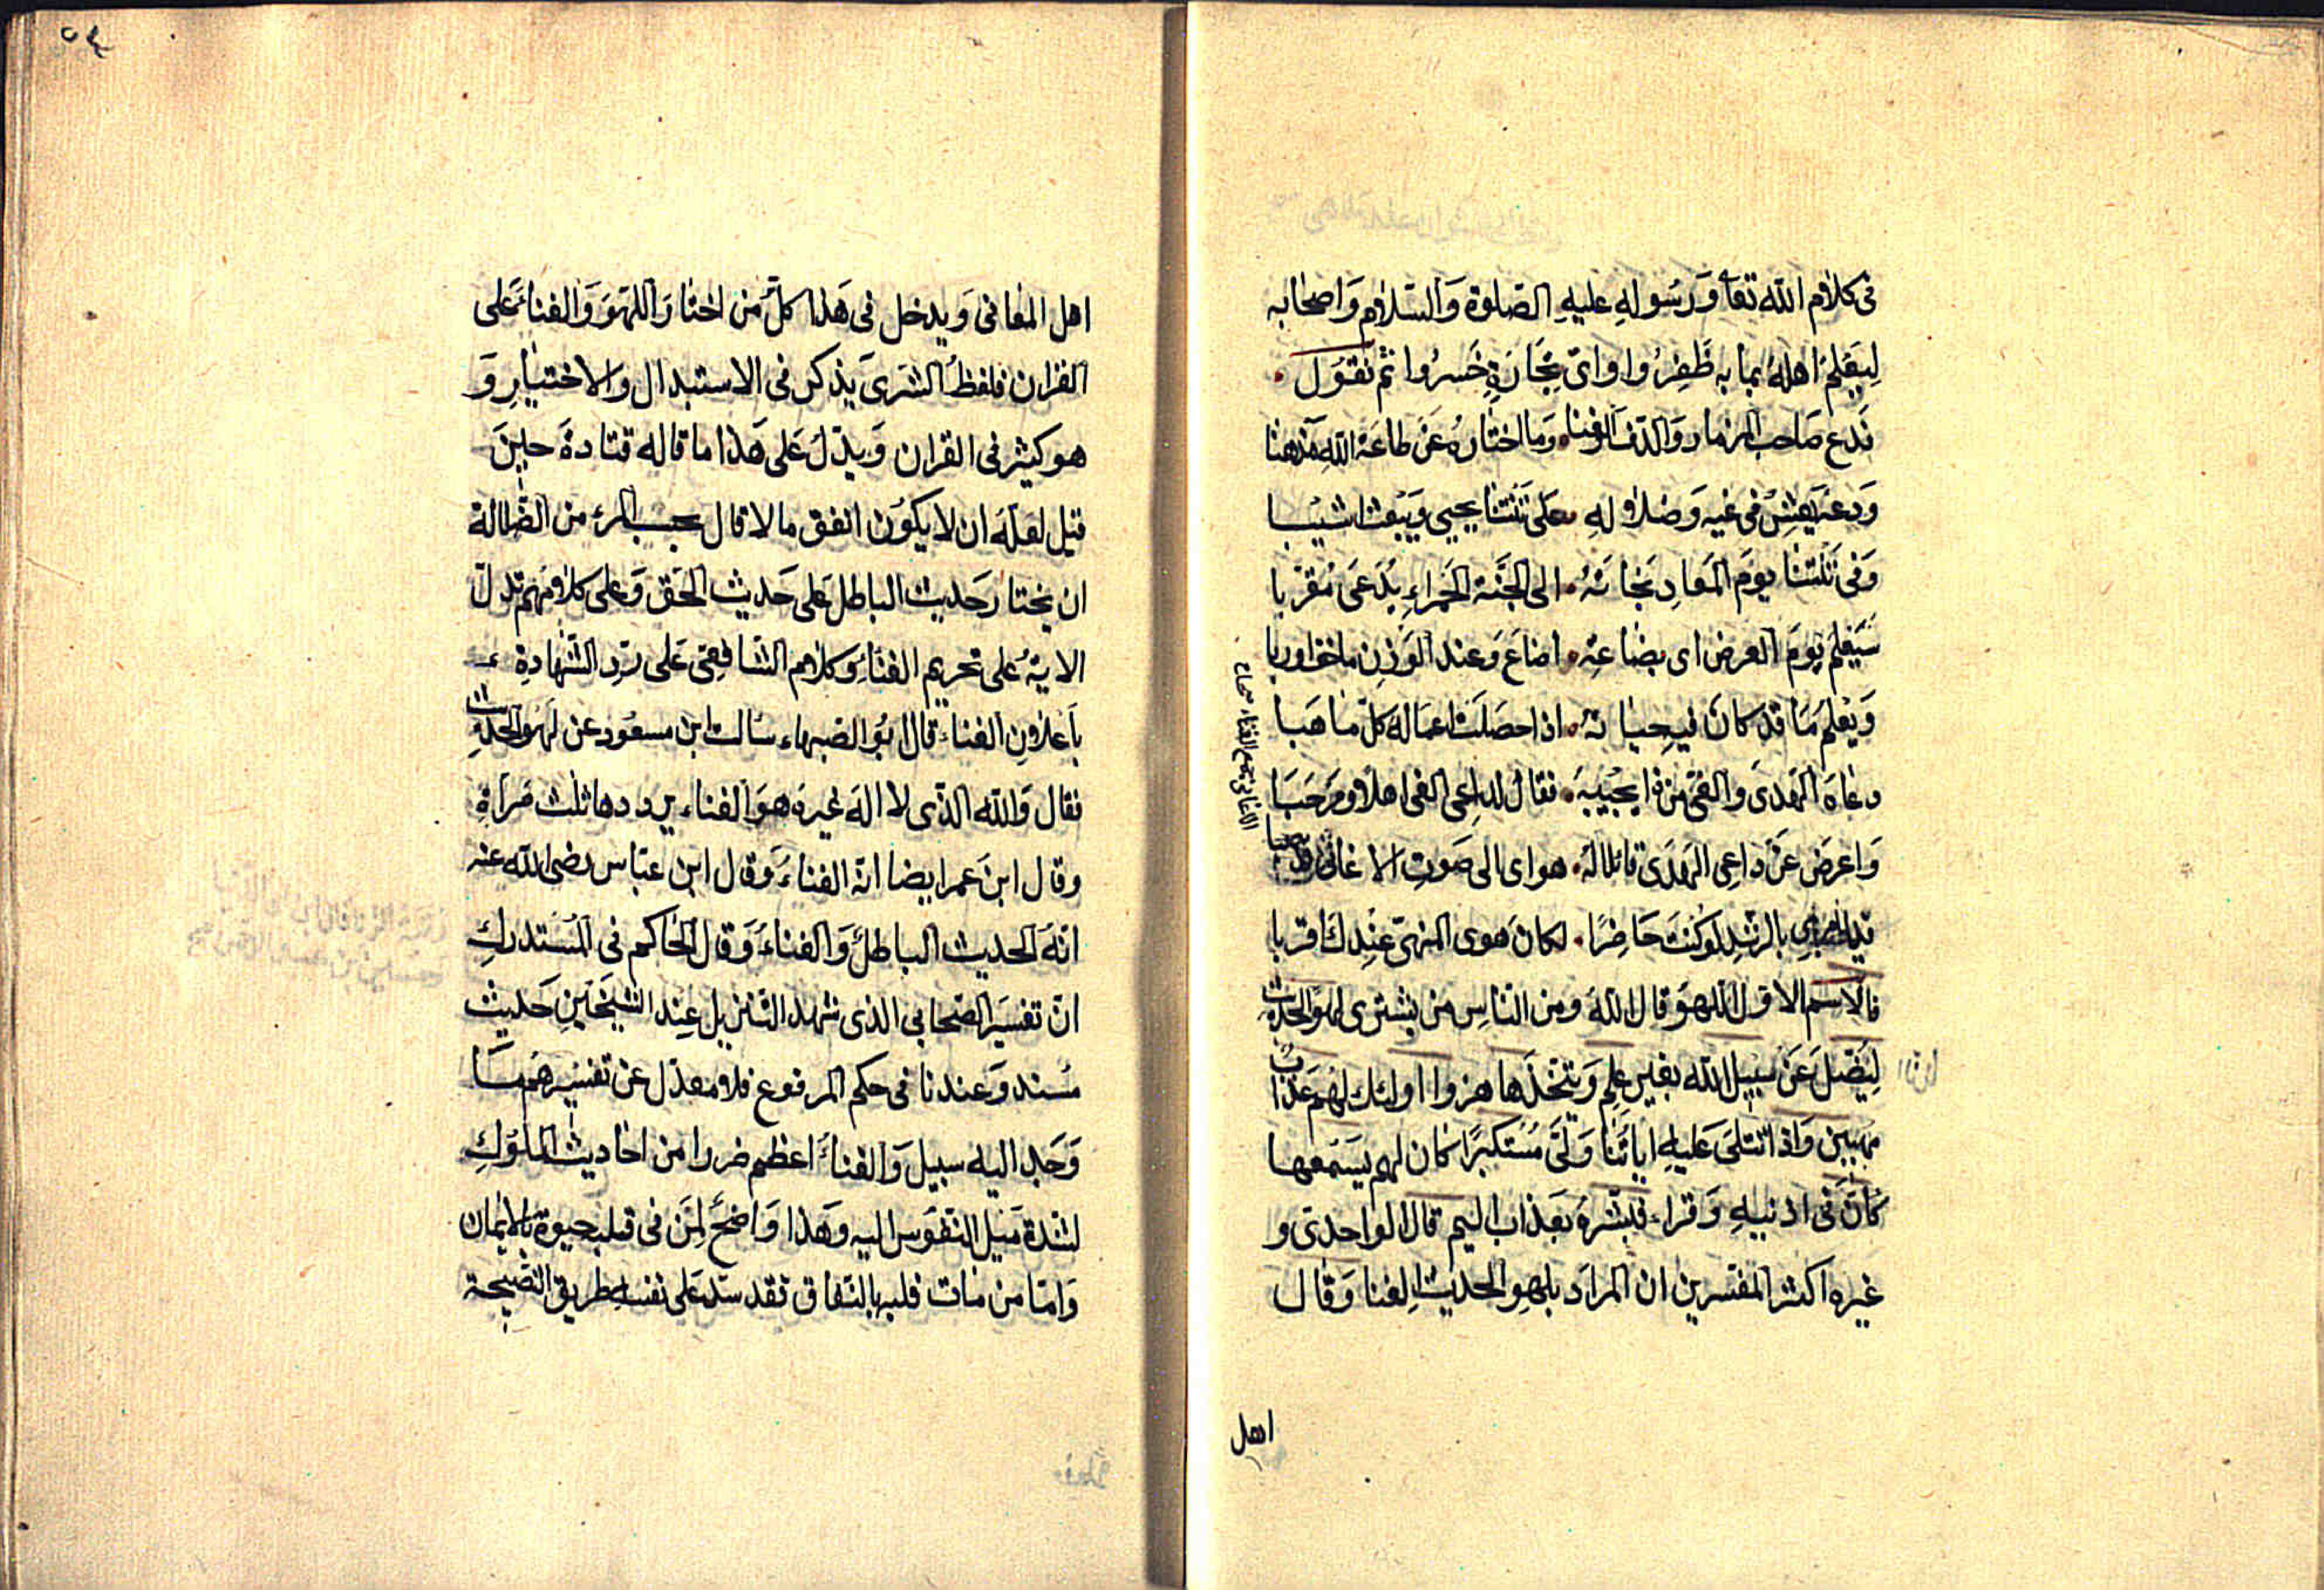 فى كلام الله تعا وَرسُولهِ عليهِ الصّلوة وَالسّلام وَاصحابه
لِيَعْلَمَ اهلهُ بما به ظَفِرُوا واىّ تِجَارَةٍ خَسِرُوا ثم نقوُل
نَدع صَاحب المزمار وَالدّف وَالغنا وَما اختارهُ عَن طاعَة اللهِ مَذهبا
وَدعهُ يَعِشْ فى غيه وَضلالِهِ على تنتنا يحيى وَيبعث اشيبا
وَفى تنتنا يومَ المَعادِ نجاتهُ الى الجنّة الحَمراءِ يُدعَى مُقرّبا
سَيعْلم يومَ العرض اى بضاعةٍ اضاعَ وَعند الوَزنِ ماخف اوربا
وَيَعْلمُ مَا قد كانَ فيه حياته اذا حصلت اعماله كلّ ما هَبا
دعاهُ الهُدَى وَالغىّ من ذا يجيبه فقال لداعِى الغى اهلا وَمرحَبَا
وَاعرَضَ عَنْ داعِى الهُدَى قائلا لهُ هواى الى صَوتِ الاغانى
بالرشد لوكنت حَاضِرًا لكان هوى المنهىّ عِندك اقربا
فالاسم الاول اللّهو قال الله ومن النّاسِ من يشترى لهوَ الحديث
لِيُضلّ عَن سَبيل الله بغير عِلم وَيتّخذَها هزوا اولئك لهُم عَذابٌ
مهين وَاذا تتلى عَليهِ اياتُنا وَلّى مُستكبِرًا كان لم يسمَعها
كأنّ فى اذنيهِ وَقرا فبشّرهُ بعَذاب اليم قال الواحدى و
غيره اكثر المفسرين ان المرادَ بلهوِ الحديث الغنا وَقال
اهل
اهل المعانى وَيدخل فى هَذا كلّ من اختارَ اللهوَ وَالغناءَ عَلى
القران فلفظ الشرى يذكر فى الاستبدال والاختيارِ وَ
هو كثير فى القران وَيدلّ عَلى هَذا ما قاله قتادة حِينَ
قيل لعلّه ان لا يكوُن انفق مالا قال بحسب المرء من الضّلالة
ان يختارَ حَديث الباطل عَلى حَديث الحَق وَعلى كلامهم تدلّ
الاية عَلى تحريم الغناء وكلام الشافِعى عَلى ردّ الشّهادةِ
باعلانِ الغناء قال ابُو الصّهباء سئالت ابن مسعُود عن لهو الحديث
فقال وَالله الذّى لا الهَ غيره هوَ الغناء يرددها ثلث مَراةٍ
وقال ابنَ عمر ايضا انه الغناء وَقال ابن عبّاس رضى الله عنه
انهُ الحديث الباطل وَالغناء وَقال الحاكم فى المُسْتدركِ
انّ تفسير الصّحابى الذى شهد التّنزيل عِند الشيخَينِ حَديث
مُسند وَعندنا فى حكم المرفوع فلا معدل عن تفسيرهم مَا
وَجد اليه سبيل وَالغناء اعظم ضررا من احاديث الملوُكِ
لشدة مَيل النّفوسِ اليه وهَذا وَاضحٌ لِمَن فى قلبه حيوة بالايمان
وَامّا من مَات قلبه بالنّفاق فقد سَدّ عَلى نفسهِ طريق النصيحة